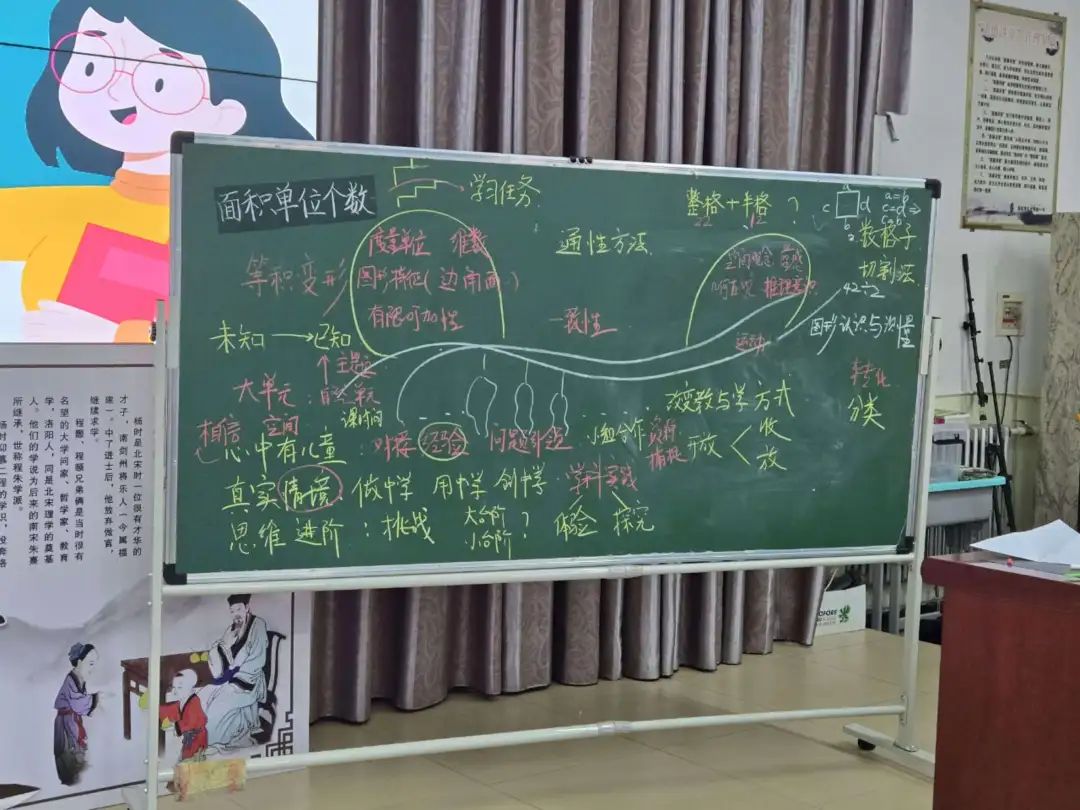 面积单位个数
学习任务
整格+半格 ?
22 12
a
c d
b
a=b
c=d
数格子
切割法
42÷2
图形认识与测量
转化
分类
度量单位 维数
图形特征(边角面)
有限可加性
等积变形
未知→已知
通性方法
一致性
空间观念 量感
几何直观 推理意识
运动
↑主题
大单元:自然单元
课时间
相信 空间
心中有儿童
对接 经验 问题引领 小组合作
改变教与学方式
开放
收
放
真实情境 做中学 用中学 创中学
学科实践
体验 探究
思维进阶:挑战
大台阶
小台阶 ?
杨时是北宋时一位很有才华的
才子,南剑州将乐人(今属福
建)。中了进士后,他放弃做官,
继续求学。
程颢、程颐兄弟俩是当时很有
名望的大学问家、哲学家、教育
家,洛阳人,同是北宋理学的奠基
人。他们的学说为后来的南宋朱熹
所继承,世称程朱学派。
杨时仰慕二程的学识,